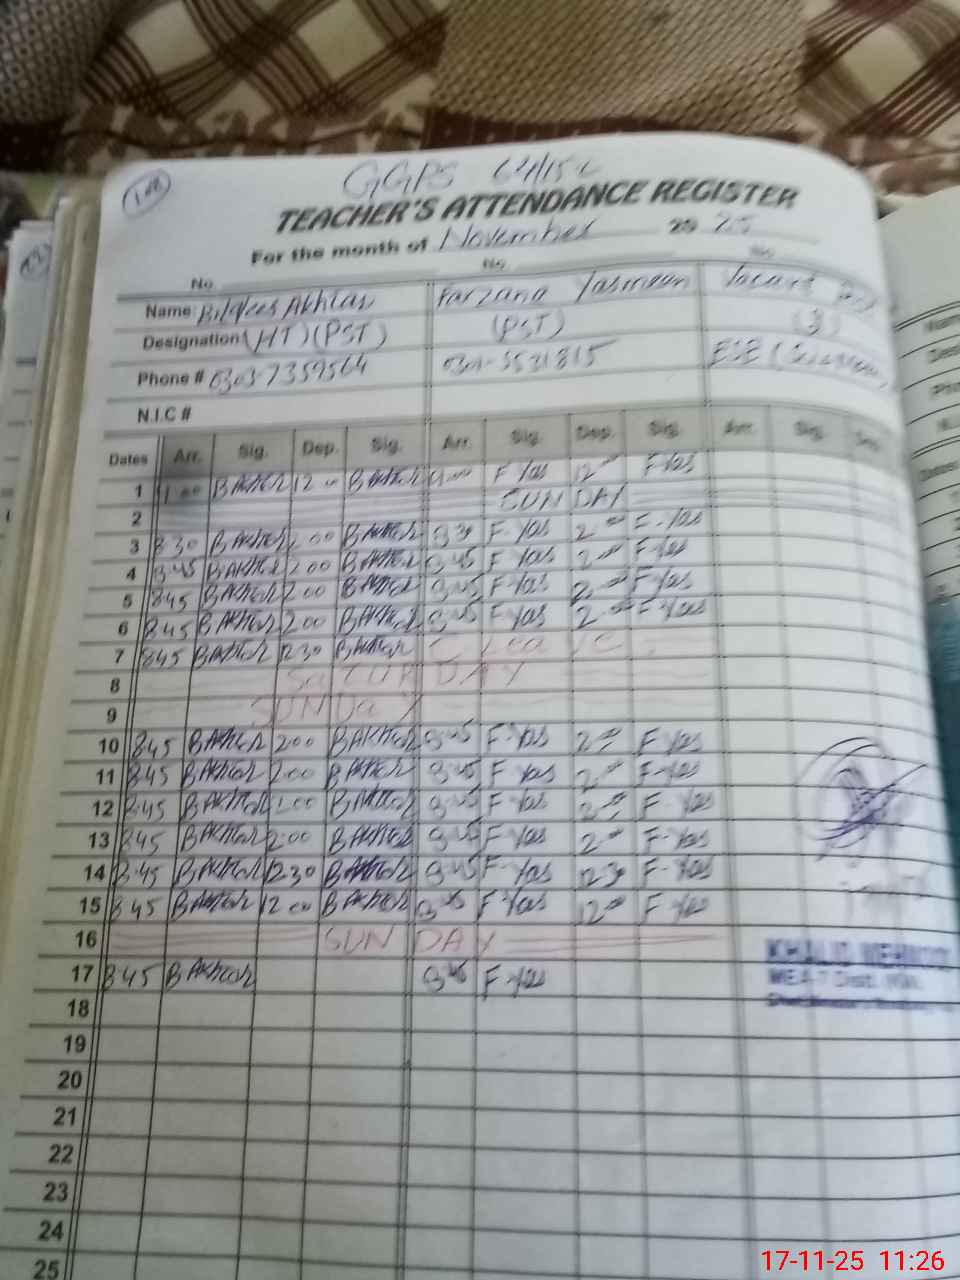 108
GGPS 64/15-L
TEACHER'S ATTENDANCE REGISTER
For the month of November 20 25
No. No. No.
Name: Bilqees Akhtar Farzana Yasmeen Vacant
Designation (HT) (PST) (PST) (3)
Phone # ESE (Science)
N.I.C #
Dates Arr. Sig. Dep. Sig. Arr. Sig. Dep. Sig. Arr. Sig. Dep.
1 BAkhtar 12 00 BAkhtar F Yas 12 00 F Yas
2 SUNDAY
3 8 30 BAkhtar 2 00 BAkhtar 8 30 F-Yas 2 00 F-Yas
4 8 45 BAkhtar 2 00 BAkhtar 8 45 F Yas 2 00 F Yas
5 8 45 BAkhtar 2 00 BAkhtar 8 45 F Yas 2 00 F Yas
6 8 45 BAkhtar 2 00 BAkhtar 8 45 F Yas 2 00 F-Yas
7 8 45 BAkhtar 12 30 BAkhtar C Leave
8 SaTURDAY
9 SUNDaY
10 8 45 BAkhtar 2 00 BAkhtar 8 45 F-Yas 2 00 F Yas
11 8 45 BAkhtar 2 00 BAkhtar 8 45 F Yas 2 00 F-Yas
12 8 45 BAkhtar 2 00 BAkhtar 8 45 F-Yas 2 00 F-Yas
13 8 45 BAkhtar 2 00 BAkhtar 8 45 F-Yas 2 00 F-Yas
14 8 45 BAkhtar 12 30 BAkhtar 8 45 F-Yas 12 30 F-Yas
15 8 45 BAkhtar 12 00 BAkhtar 8 45 F Yas 12 00 F-Yas
16 SUNDAY
KHALID MEHMOOD
17 8 45 BAkhtar 8 45 F-Yas
MEA 7 Distt.
18
19
20
21
22
23
24
25
17-11-25 11:26